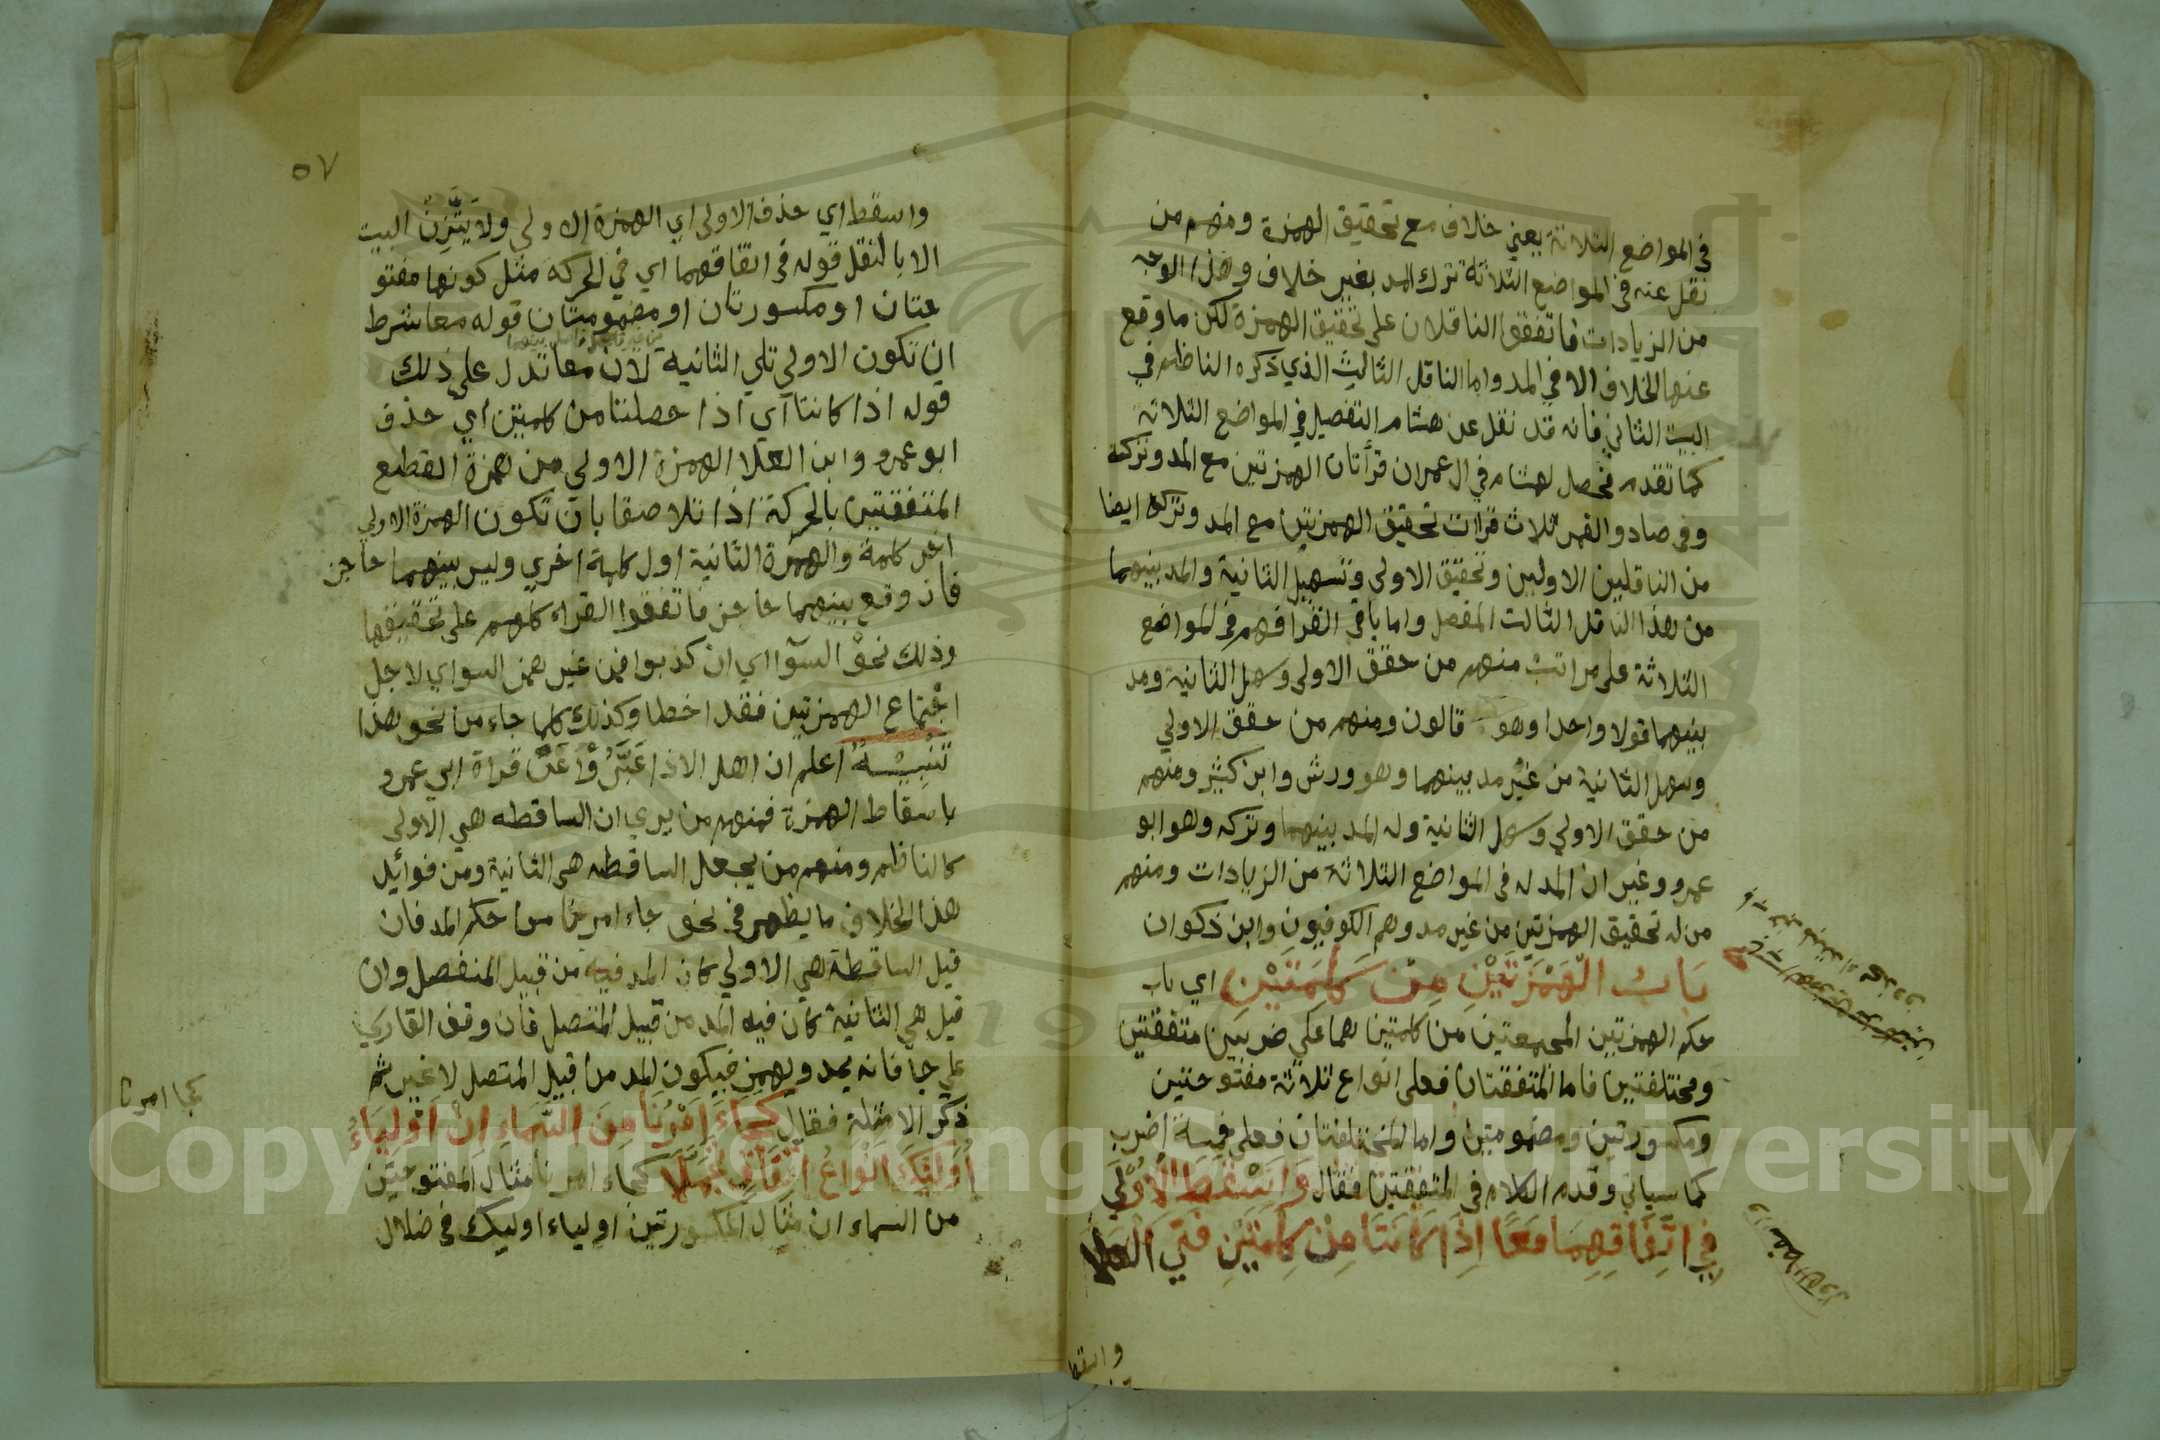 في المواضع الثلاثة بغير خلاف مع تحقيق الهمزة ومنهم من
نقل عنه في المواضع الثلاثة ترك المد بغير خلاف وهذا الوجه
من الزيادات فاتفقوا الناقلان على تحقيق الهمزة لكن ما وقع
عنها الخلاف الا في المد واما الناقل الثالث الذي ذكره الناظم في
البيت الثاني فانه قد نقل عن هشام التفصيل في المواضع الثلاثة
كما تقدم فحصل لهشام في ال عمران قرأتان الهمزتين مع المد وتركه
وفي صاد والقمر ثلاث قرات تحقيق الهمزتين مع المد وتركه ايضا
من الناقلين الاولين وتحقيق الاولى وتسهيل الثانية والمد بينهما
من هذا الناقل الثالث المفصل واما باقي القرا فهم في المواضع
الثلاثة على مراتب منهم من حقق الاولى وسهل الثانية ومد
بينهما قولا واحدا وهو قالون ومنهم من حقق الاولي
وسهل الثانية من غير مد بينهما وهو ورش وابن كثير ومنهم
من حقق الاولي وسهل الثانية وله المد بينهما وتركه وهو ابو
عمرو وغير ان المد له في المواضع الثلاثة من الزيادات ومنهم
من له تحقيق الهمزتين من غير مد وهم الكوفيون وابن ذكوان
بَابُ الْهَمْزَتَيْنِ مِنْ كَلِمَتَيْنِ اي باب
حكم الهمزتين المجمعتين من كلمتين هما علي ضربين متفقتين
ومختلفتين فاما المتفقتان فعلى انواع ثلاثة مفتوحتين
ومكسورتين ومضمومتين واما المختلفتان فعلى خمسة اضرب
كما سياتي وقدم الكلام في المتفقتين فقال وَاَسْقَطَ الْاُوْلَي
فِي اتِّفَاقِهِمَا مَعًا اِذَا كَانَتَا مِنْ كِلْمَتَيْنِ فَتَي الْعلا
واسقط
٥٧
واسقط اي حذف الاولى اي الهمزة الاولي ولا يَتَّزِن البيت
الا بالنقل قوله في اتفاقهما اي في الحركة مثل كونها مفتو
حتان او مكسورتان او مضمومتان قوله معا شرط
ان تكون الاولي تلي الثانية لان معا تدل على ذلك
قوله اذا كانتا اي اذا حصلتا من كلمتين اي حذف
ابو عمرو وابن العلا الهمزة الاولي من همزة القطع
المتفقتين بالحركة اذا تلاصقا بان تكون الهمزة الاولي
اخر كلمة والهمزة الثانية اول كلمة اخري وليس بينهما حاجز
فان وقع بينهما حاجز فاتفقوا القراء كلهم على تحقيقها
وذلك نحو السوآ اي ان كذبوا فمن غير همز السواي لاجل
اجتماع الهمزتين فقد اخطا وكذلك كلما جاء من نحو هذا
تَنْبِيْـهٌ اعلم ان اهل الاذا عَبَّرُوْا عَنْ قراة ابي عمرو
باسقاط الهمزة فمنهم من يري ان الساقطه هي الاولى
كالناظم ومنهم من يجعل الساقطه هي الثانية ومن فوائد
هذا الخلاف ما يظهر في نحو جاء امرنا من حكم المد فان
قيل الساقطة هي الاولي كان المد فيه من قبيل المنفصل وان
قيل هي الثانية كان فيه المد من قبيل المتصل فان وقف القاري
علي جا فانه يمد ويهمز فيكون المد من قبيل المتصل لا غير ثم
ذكر الامثلة فقال كَجَاءَ اَمْرُنَا مِنَ السَّمَاءِ اِنْ اَوْلِيَاءُ
اُولَئِكَ اَنْوَاعُ اتِّفَاقٍ تَجَمَّلَا كجاء امرنا مثال المفتوحتين
من السماء ان مثال المكسورتين اولياء اوليك في ضلال
كجا امرنا
Copyright © King Saud University